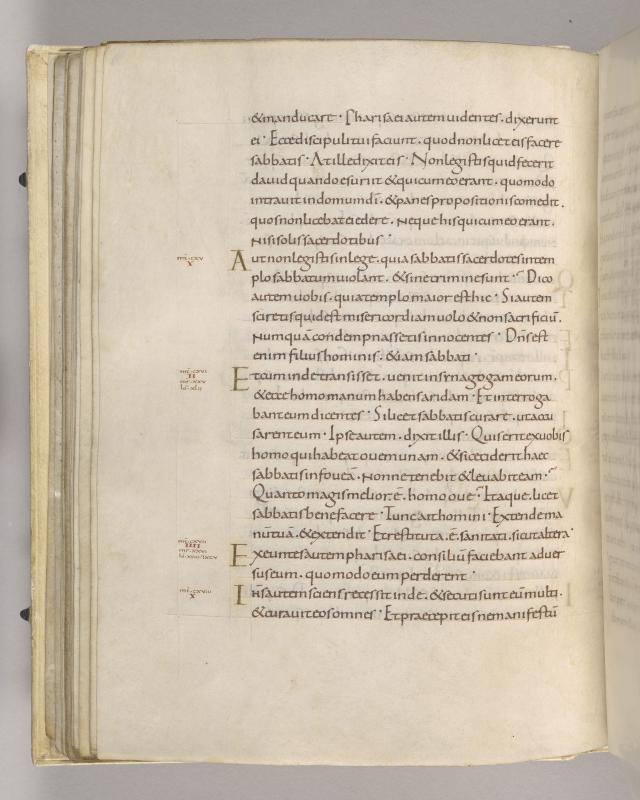 &manducare · Pharisaei autem uidentes . dixerunt
ei · Ecce discipuli tui faciunt . quod non licet eis facere
sabbatis · At ille dixit eis · Non legistis quid fecerit
dauid quando esuriit & qui cum eo erant . quomodo
intrauit in domum di . & panes propositionis comedit .
quos non licebat ei edere . Neque his qui cum eo erant .
Nisi solis sacerdotibus ·
mt cxv
X
Aut non legistis in lege . quia sabbatis sacerdotes in tem
plo sabbatum uiolant . & sine crimine sunt · Dico
autem uobis . quia templo maior est hic · Si autem
sciretis quid est misericordiam uolo & non sacrificiū .
Numquā condempnassetis innocentes · Dn̄s est
enim filius hominis . &iam sabbati ·
mt cxvi
II
mr xxv
Et cum inde transisset . uenit in synagogam eorum .
& ecce homo manum habens aridam · Et interroga
bant eum dicentes · Si licet sabbatis curare . ut accu
sarent eum · Ipse autem . dixit illis · Quis erit ex uobis
homo qui habeat ouem unam . & si ceciderit haec
sabbatis in foueā . Nonne tenebit & leuabit eam ·
Quanto magis melior . ē . homo oue · Itaque . licet
sabbatis benefacere · Tunc ait homini · Extende ma
nū tuā . & extendit · Et restituta . ē . sanitati . sicut altera ·
mt cxvii
IIII
mr xxvi
Exeuntes autem pharisaei . consiliū faciebant aduer
sus eum . quomodo eum perderent ·
mt cxviii
X
Ih̄s autem sciens recessit inde . & secuti sunt eū multi .
& curauit eos omnes · Et praecepit eis ne manifestū